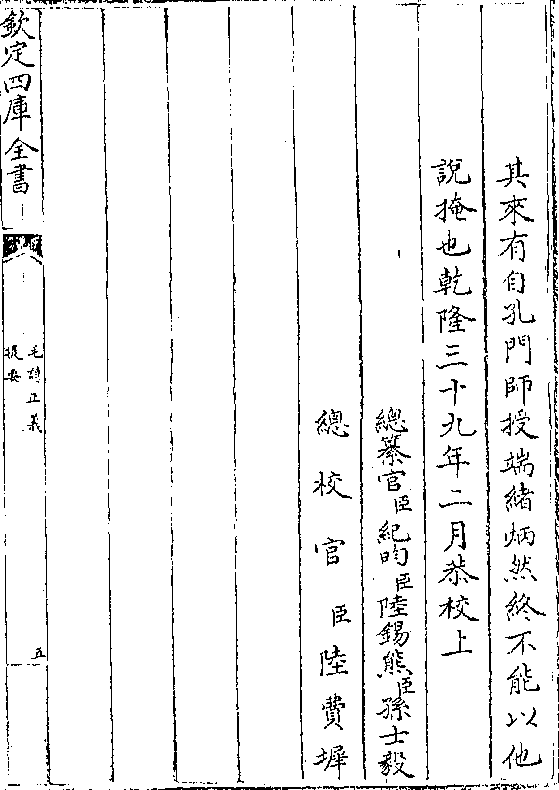 其來有自孔門師授端緒炳然終不能以他
說掩也乾隆三十九年二月恭校上
總纂官臣紀昀臣陸錫熊臣孫士毅
總校官臣陸費墀
欽定四庫全書
毛詩正義
提要
五